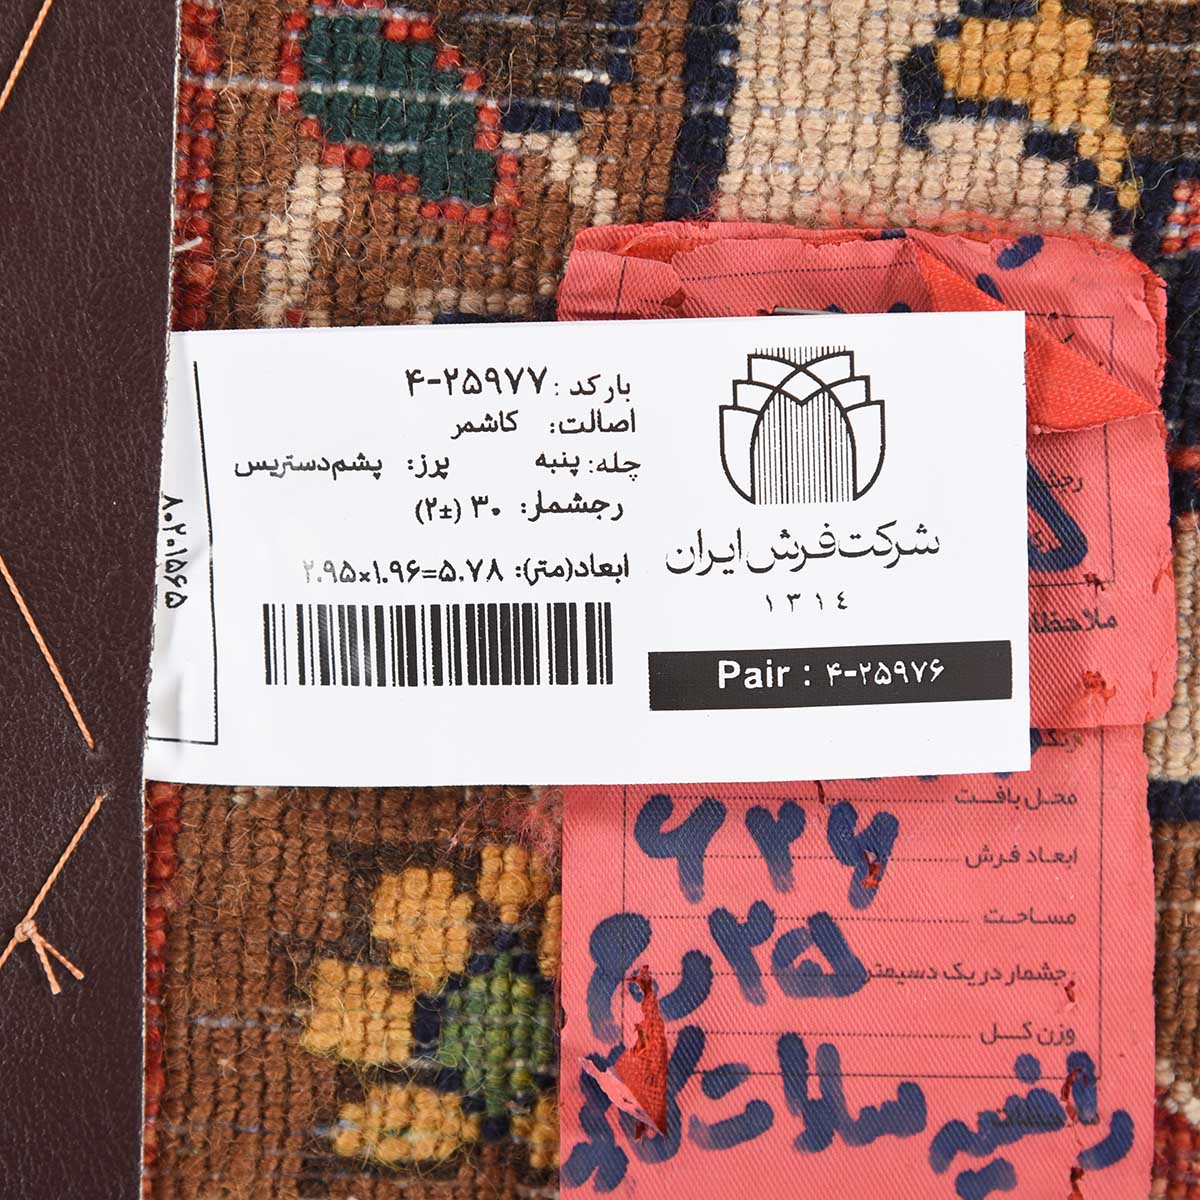 بارکد: ۴-۲۵۹۷۷
اصالت: کاشمر
چله: پنبه پرز: پشم دستریس
رجشمار: ۳۰ (±۲)
ابعاد(متر): ۲.۹۵×۱.۹۶=۵.۷۸
شرکت فرش ایران
۱۳۱۴
Pair : ۴-۲۵۹۷۶
۸۰۲۰۱۵۶۵
ملاحظات
محل بافت
ابعاد فرش
۶۲۶
مساحت
رجشمار در یک دسیمتر
۲۵
وزن کل